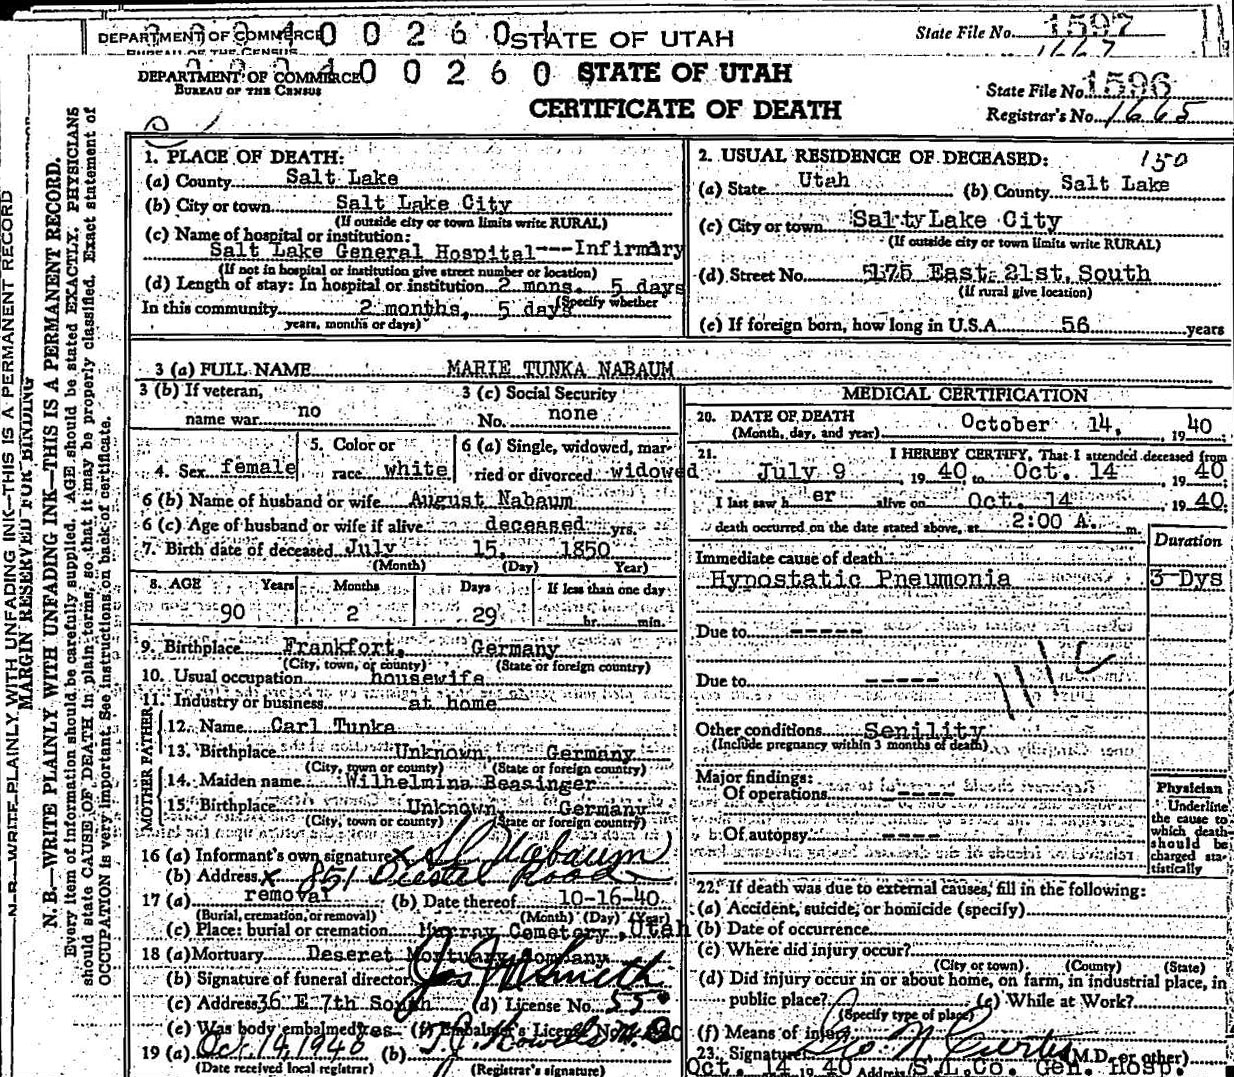 DEPARTMENT OF COMMERCE 0 0 2 6 0 STATE OF UTAH State File No. 1597
BUREAU OF THE CENSUS 1667
DEPARTMENT OF COMMERCE 0 0 2 6 0 STATE OF UTAH
BUREAU OF THE CENSUS
State File No. 1596
CERTIFICATE OF DEATH
Registrar's No. 1665
N. B.—WRITE PLAINLY WITH UNFADING INK—THIS IS A PERMANENT RECORD
MARGIN RESERVED FOR BINDING
N. B.—WRITE PLAINLY WITH UNFADING INK—THIS IS A PERMANENT RECORD.
Every item of information should be carefully supplied. AGE should be stated EXACTLY. PHYSICIANS
should state CAUSE OF DEATH in plain terms, so that it may be properly classified. Exact statement of
OCCUPATION is very important. See instructions on back of certificate.
1. PLACE OF DEATH:
(a) County Salt Lake
(b) City or town Salt Lake City
(If outside city or town limits write RURAL)
(c) Name of hospital or institution:
Salt Lake General Hospital---Infirmary
(If not in hospital or institution give street number or location)
(d) Length of stay: In hospital or institution 2 mons. 5 days
(Specify whether
In this community 2 months, 5 days
years, months or days)
2. USUAL RESIDENCE OF DECEASED: 150
(a) State Utah (b) County Salt Lake
(c) City or town Salt Lake City
(If outside city or town limits write RURAL)
(d) Street No. East 21st. South
(If rural give location)
(e) If foreign born, how long in U.S.A. 56 years
3 (a) FULL NAME MARIE TUNKA NABAUM
3 (b) If veteran,
name war no
3 (c) Social Security
No. none
4. Sex female
5. Color or
race white
6 (a) Single, widowed, mar-
ried or divorced widowed
6 (b) Name of husband or wife August Nabaum
6 (c) Age of husband or wife if alive deceased yrs.
7. Birth date of deceased July 15, 1850
(Month) (Day) Year)
8. AGE Years Months Days If less than one day
90 2 29 hr. min.
9. Birthplace Frankfort, Germany
(City, town, or county) (State or foreign country)
10. Usual occupation housewife
11. Industry or business at home
FATHER
12. Name Carl Tunka
13. Birthplace Unknown, Germany
(City, town or county) (State or foreign country)
MOTHER
14. Maiden name Wilhelmina Beasinger
15. Birthplace Unknown, Germany
(City, town or county) (State or foreign country)
16 (a) Informant's own signature x Nabaum
(b) Address x 851 Diestel Road
17 (a) removal (b) Date thereof 10-16-40
(Burial, cremation, or removal) (Month) (Day) (Year)
(c) Place: burial or cremation Murray Cemetery, Utah
18 (a) Mortuary Deseret Mortuary Company
(b) Signature of funeral director Smith
(c) Address 36 E 7th South (d) License No. 55
(e) Was body embalmed yes (f) Embalmer's License No.
19 (a) Oct 14, 1940 (b)
(Date received local registrar) (Registrar's signature)
MEDICAL CERTIFICATION
20. DATE OF DEATH
(Month, day, and year) October 14, 19 40
21. I HEREBY CERTIFY, That I attended deceased from
July 9 , 19 40 to Oct. 14 , 19 40
I last saw h er alive on Oct. 14 , 19 40;
death occurred on the date stated above, at 2:00 A. m.
Duration
Immediate cause of death
Hypostatic Pneumonia 3 Dys
Due to -----
Due to -----
Other conditions Senility
(Include pregnancy within 3 months of death)
Major findings:
Of operations ----
Of autopsy ----
Physician
Underline
the cause to
which death
should be
charged sta-
tistically
22. If death was due to external causes, fill in the following:
(a) Accident, suicide, or homicide (specify)
(b) Date of occurrence
(c) Where did injury occur?
(City or town) (County) (State)
(d) Did injury occur in or about home, on farm, in industrial place, in
public place? (e) While at Work?
(Specify type of place)
(f) Means of injury
23. Signature Curtis (M.D. or other)
Oct. 14 19 40 Address S.L.Co. Gen. Hosp.